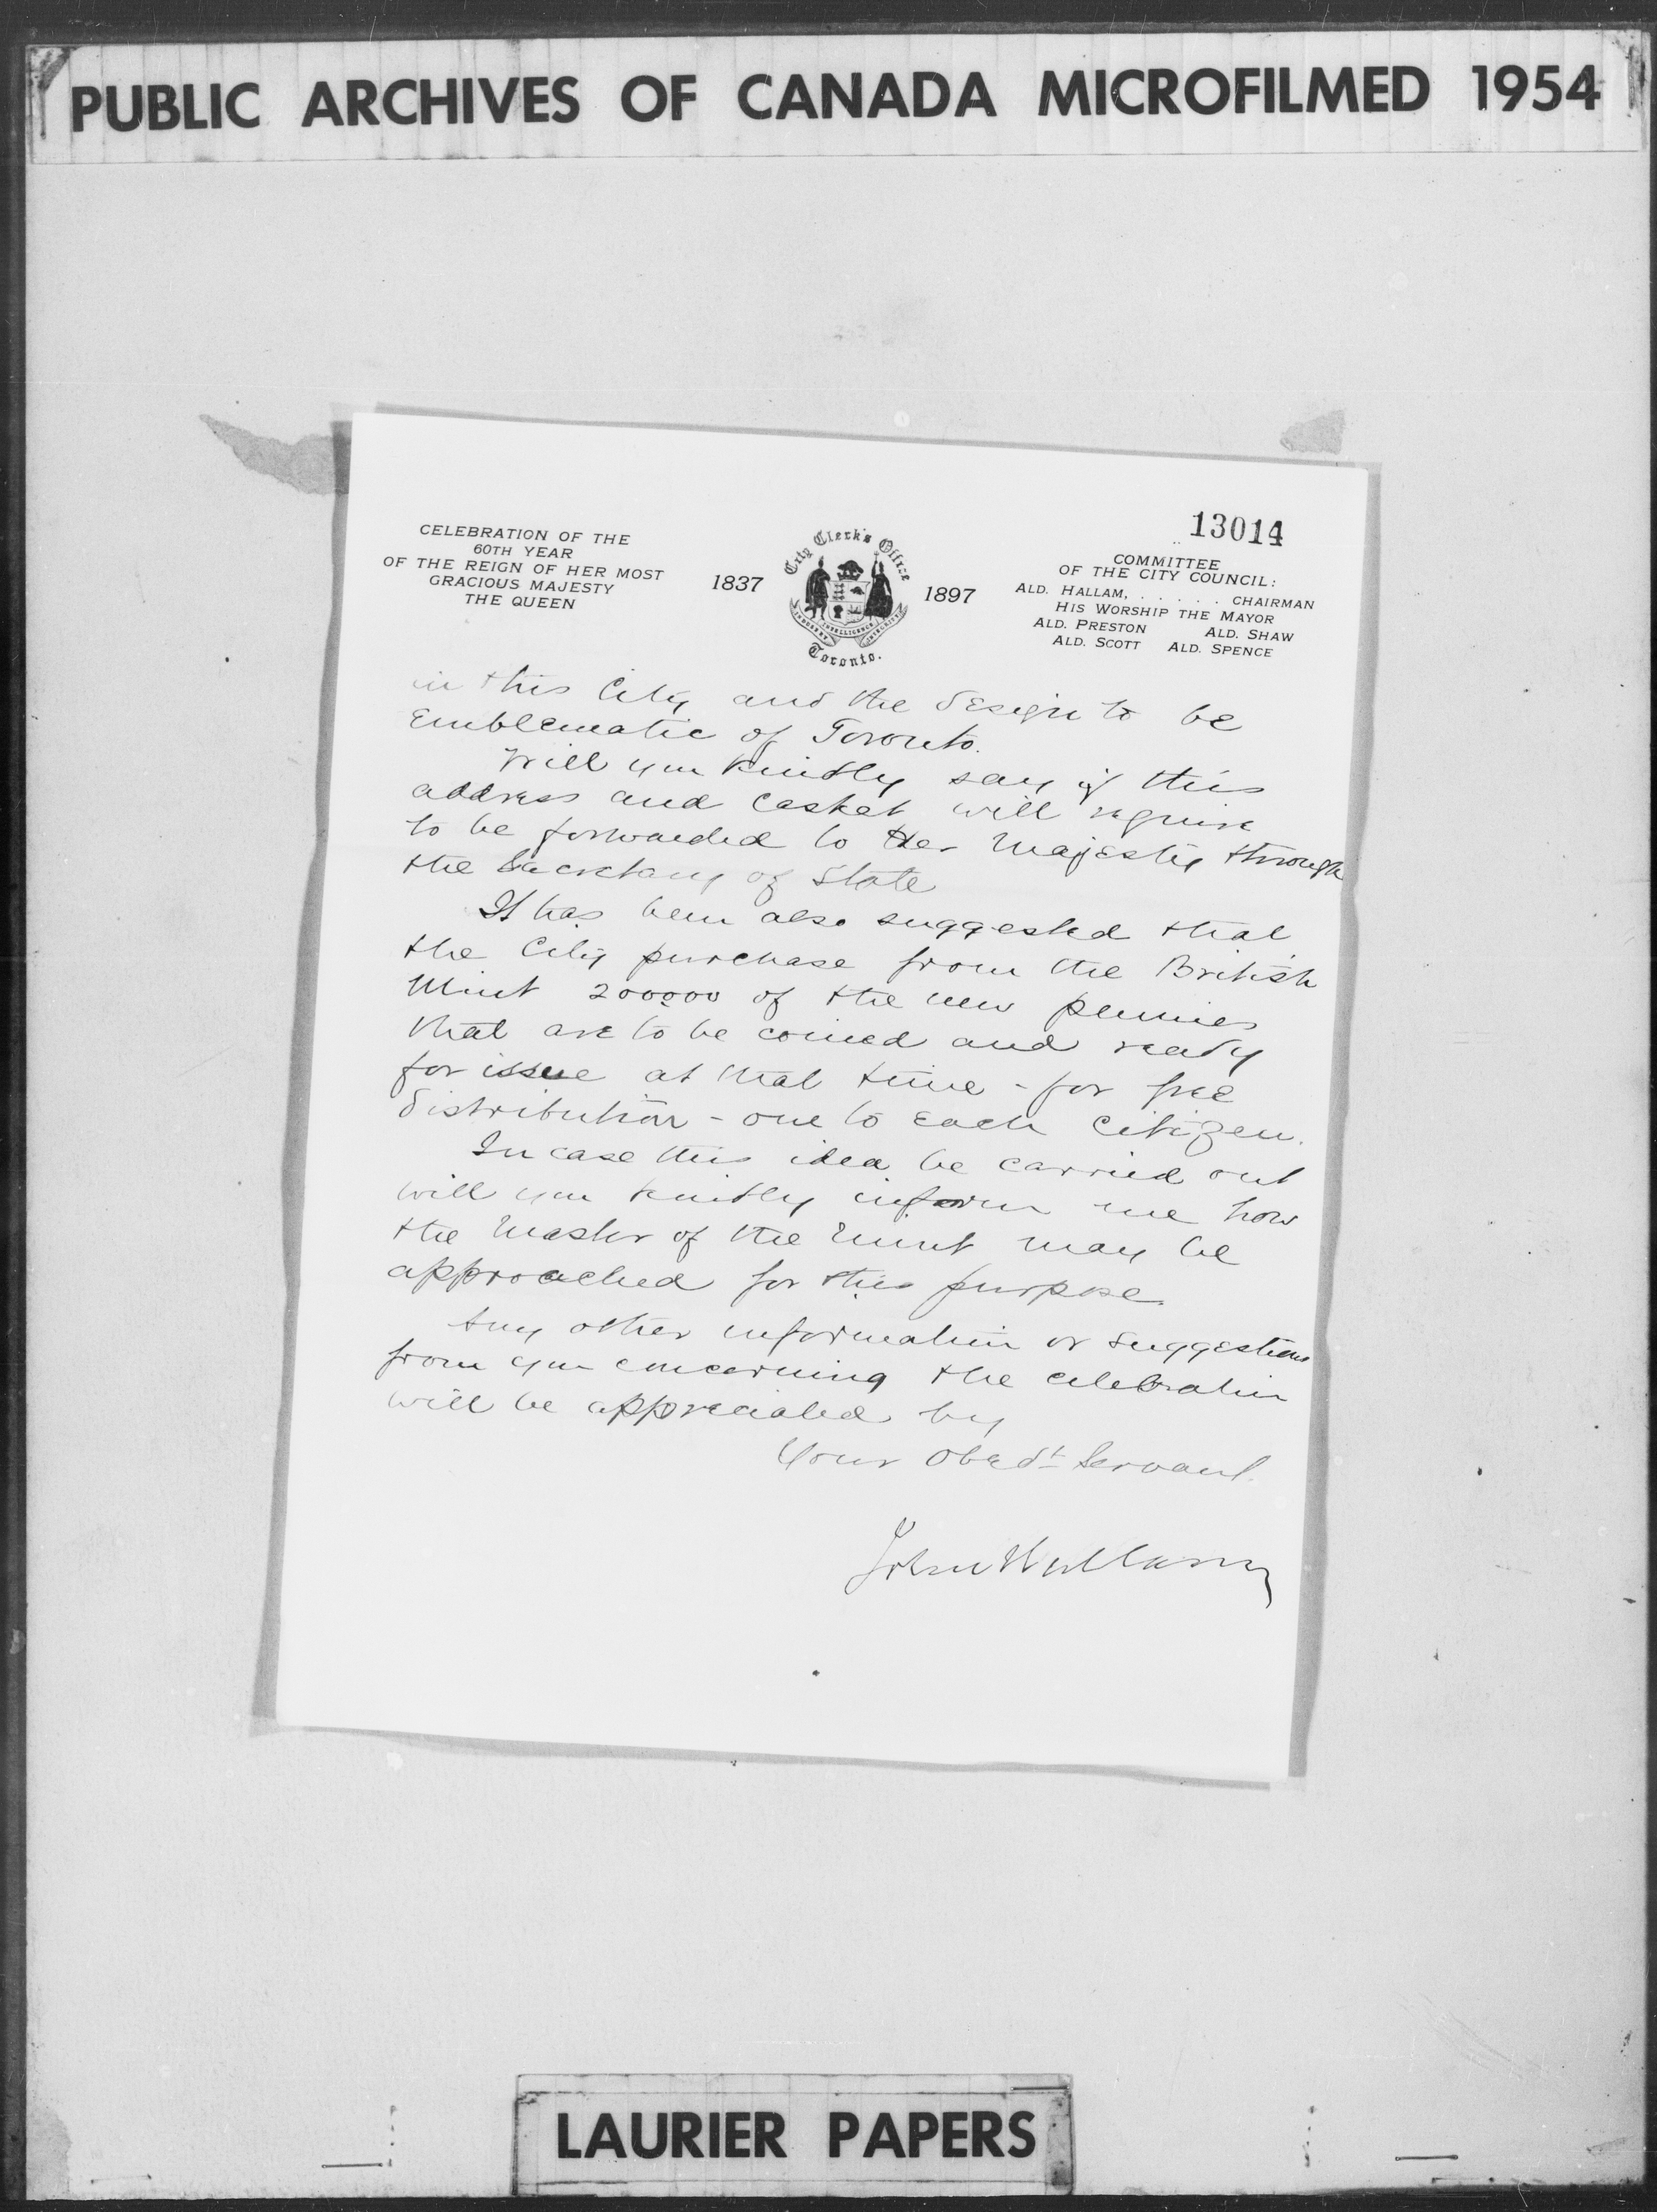 PUBLIC ARCHIVES OF CANADA MICROFILMED 1954
13014
CELEBRATION OF THE
60TH YEAR
OF THE REIGN OF HER MOST
GRACIOUS MAJESTY
THE QUEEN
1837
City Clerk's Office
INDUSTRY INTELLIGENCE INTEGRITY
Toronto.
1897
COMMITTEE
OF THE CITY COUNCIL:
ALD. HALLAM, . . . . . CHAIRMAN
HIS WORSHIP THE MAYOR
ALD. PRESTON ALD. SHAW
ALD. SCOTT ALD. SPENCE
in this City and the design to be
Emblematic of Toronto.
Will you kindly say if this
address and casket will require
to be forwarded to Her Majesty through
the Secretary of State
It has been also suggested that
the City purchase from the British
Mint 200000 of the new pennies
that are to be coined and ready
for issue at that time - for free
distribution - one to each Citizen.
In case this idea be carried out
will you kindly inform me how
the Master of the Mint may be
approached for this purpose.
Any other information or suggestions
from you concerning the celebration
will be appreciated by
Your Obedt Servant.
John Hallam
LAURIER PAPERS